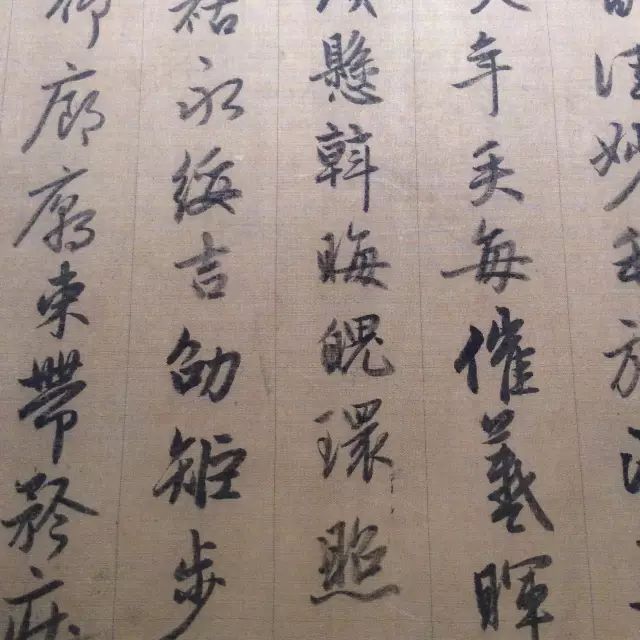 佳妙毛施淑
年矢每催羲暉
懸斡晦魄環照
祜永綏吉劭矩步
仰廊廟束帶矜莊